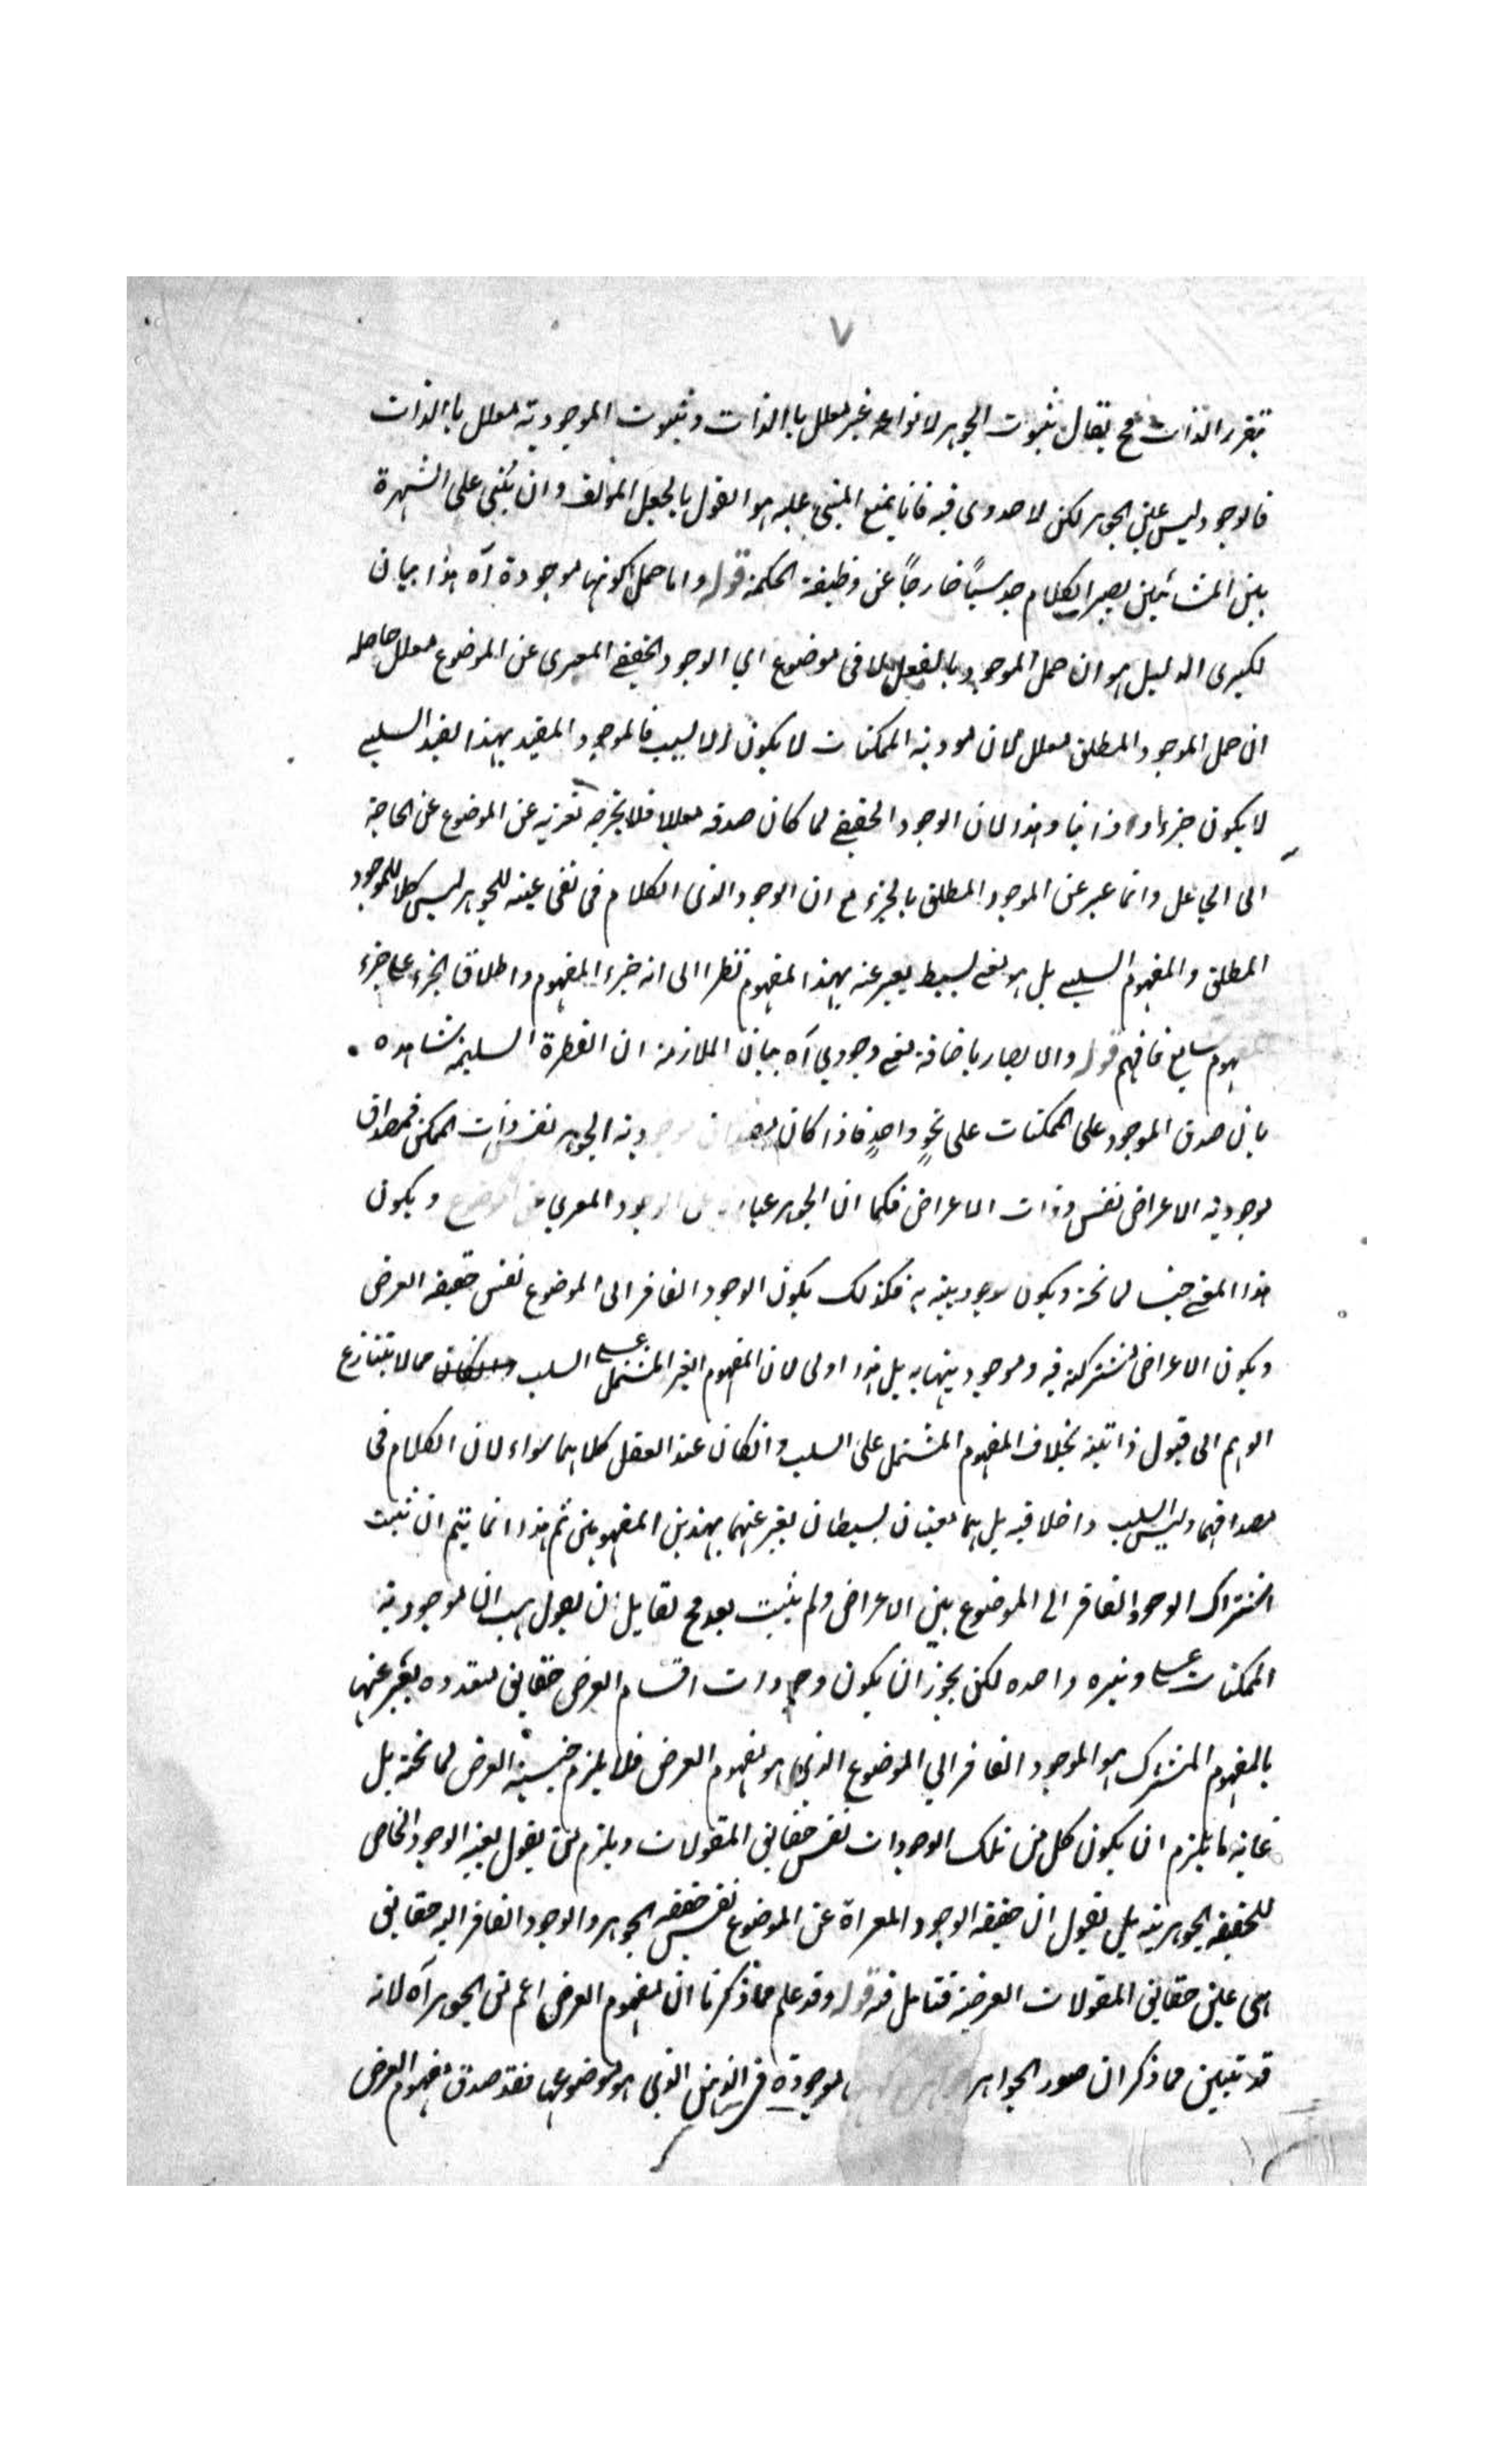 ٧
بتقرر الذات فح يقال ثبوت الجوهر لانواعه غير معلل بالذات وثبوت الموجودية معلل بالذات
فالوجود ليس عين الجوهر لكن لا جدوى فيه فانا نمنع المبنى عليه هو القول بالجعل المؤلف وان بُني على الشهرة
بين المشائين يصير الكلام جدليًا خارجًا عن وظيفة الحكمة قوله واما حمل كونها موجودة آه هذا بيان
لكبرى الدليل هو ان حمل الموجود بالفعل لا فى موضوع اي الوجود الحقيقي المعرى عن الموضوع معلل حاصله
ان حمل الموجود المطلق معلل فان موجودية الممكنات لا يكون الا لسبب فالموجود المقيد بهذا القيد السلبي
لا يكون جزءا و ذاتيا وهذا لان الوجود الحقيقي لما كان صدقه معللا فلا يخرجه تعريه عن الموضوع عن الحاجة
الى الجاعل وانما عبر عن الموجود المطلق بالجزء مع ان الوجود الذى الكلام فى نفى عينيته للجوهر ليس كلا للموجود
المطلق والمفهوم السلبي بل هو معنى بسيط يعبر عنه بهذا المفهوم نظرا الى انه جزء المفهوم واطلاق الجزء على جزء
مفهوم سايغ فافهم قوله والا لصار باضافة معنى وجودي آه بيان الملازمة ان الفطرة السليمة شاهده
بان صدق الموجود على الممكنات على نحوٍ واحدٍ فاذا كان مصداق موجودية الجوهر نفس ذات الممكن فمصداق
موجودية الاعراض نفس ذات الاعراض فكما ان الجوهر عبارة عن الوجود المعرى عن الموضوع ويكون
هذا المعنى جنسا لما تحته ويكون موجوديته به فكذلك يكون الوجود الفاقر الى الموضوع نفس حقيقة العرض
ويكون الاعراض مشتركة فيه وموجوديتها به بل هذا اولى لان المفهوم الغير المشتمل على السلب مما لا يتنازع
الوهم الى قبول ذاتيته بخلاف المفهوم المشتمل على السلب وانكان عند العقل كلاهما سواء لان الكلام فى
مصداقهما وليس السلب داخلا فيه بل هما معنيان بسيطان يعبر عنهما بهذين المفهومين ثم هذا انما يتم ان ثبت
اشتراك الوجود الفاقر الى الموضوع بين الاعراض ولم يثبت بعد فح لقايل ان يقول هب ان موجودية
الممكنات على وتيره واحده لكن يجوز ان يكون وجودات اقسام العرض حقايق متعدده يعبر عنها
بالمفهوم المشترك هو الموجود الفاقر الي الموضوع الذي هو مفهوم العرض فلا يلزم جنسية العرض لما تحته بل
غاية ما يلزم ان يكون كل من تلك الوجودات نفس حقايق المقولات ويلتزم من يقول بعينية الوجود الخاص
للحقيقة الجوهرية بل يقول ان حقيقة الوجود المعراة عن الموضوع نفس حقيقة الجوهر والوجود الفاقر اليه حقايق
هى عين حقايق المقولات العرضية فتامل فيه قوله وقد علم مما ذكرنا ان مفهوم العرض اعم من الجوهر آه لانه
قد تبين مما ذكر ان صور الجواهر موجودة في الذهن الذي هو موضوع لها فقد صدق مفهوم العرض